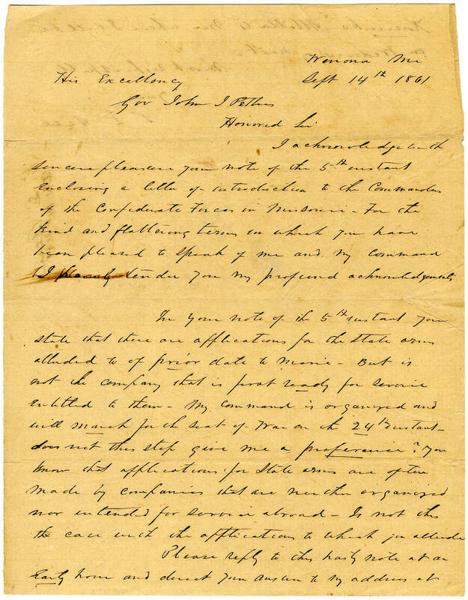 Winona Mi
Sept 14th 1861
His Excellency
Gov John J Pettus
Honored Sir
I acknowledge with
sincere pleasure your note of the 5th instant
enclosing a letter of introduction to the Commander
of the Confederate Forces in Missouri - For the
kind and flattering terms in which you have
been pleased to speak of me and my command
I tender you my profound acknowledgments
In your note of the 5th instant you
state that there are applications for the State arms
alluded to of prior date to mine - But is
not the company that is first ready for service
entitled to them - My command is organized and
will march for the seat of War on the 24th instant -
does not this step give me a preference? You
know that applications for State arms are often
made by companies that are neither organized
nor intended for service abroad - Is not this
the case with the applications to which you allude
Please reply to this hasty note at an
Early hour and direct your answer to my address at